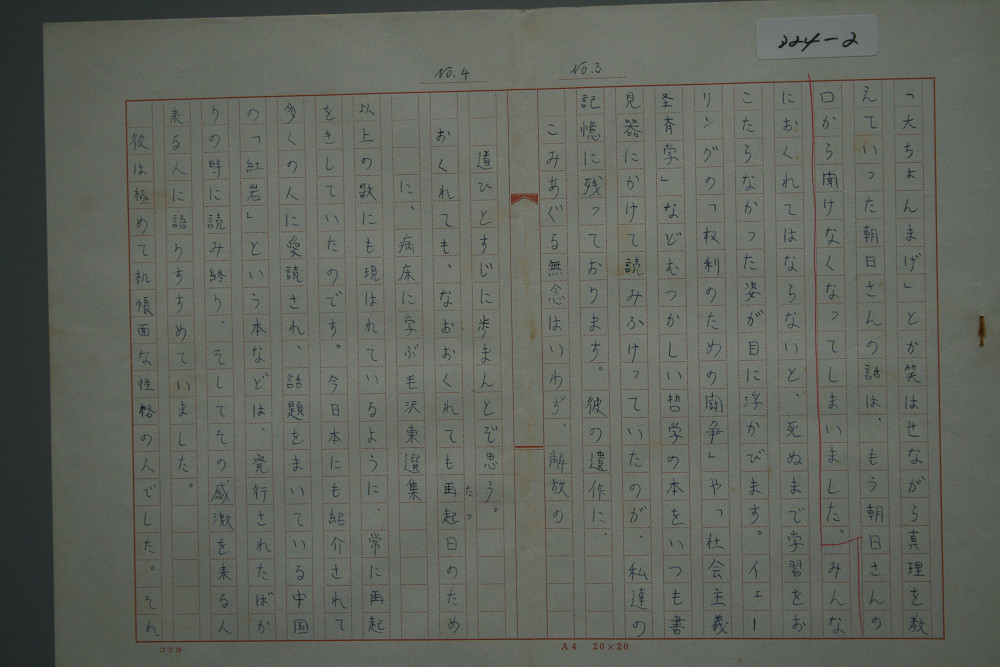 324-2
No.3
「大ちょんまげ」とか笑はせながら真理を教
えていった朝日さんの話は、もう朝日さんの
口から聞けなくなってしまいました。みんな
におくれてはならないと、死ぬまで学習をお
こたらなかった姿が目に浮かびます。イェー
リングの「权利のための闘争」や「社会主義
圣済学」などむつかしい哲学の本をいつも書
見器にかけて読みふけっていたのが、私達の
記憶に残っております。彼の遺作に、
こみあぐる無念はいわぢ、解放の
No.4
道ひとすじに歩まんとぞ思う。
おくれても、なおおくれても再起日のため
たつ
に、病床に学ぶ毛沢東選集
以上の歌にも現はれているように、常に再起
をきしていたのです。今日本にも紹介されて
多くの人に愛読され、話題をまいている中国
の「紅岩」という本などは、発行されたばか
りの時に読み終り、そしてその感激を来る人
来る人に語りすすめていました。
彼は極めて机帳面な性格の人でした。それ
コクヨ
A4 20×20